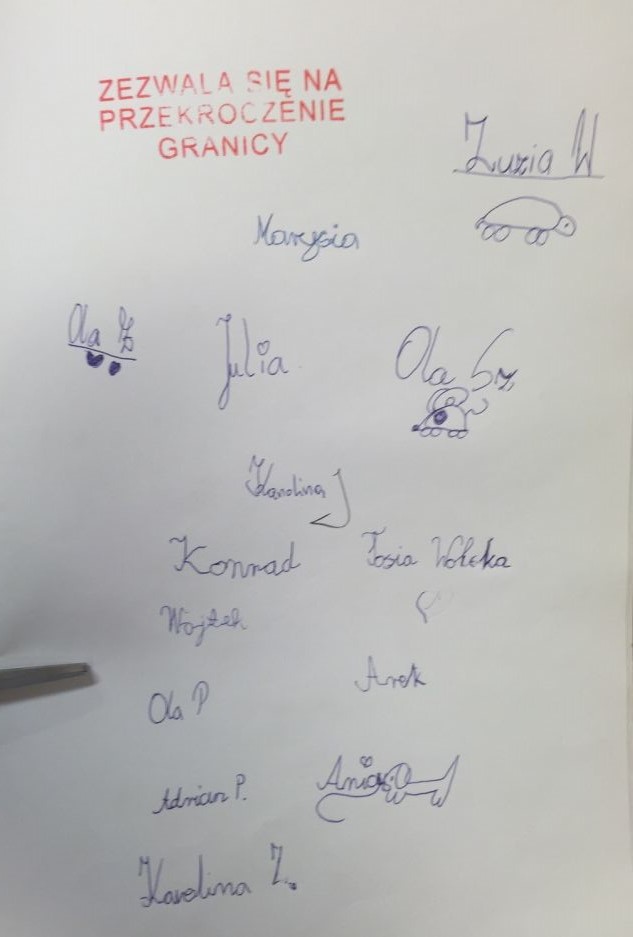 ZEZWALA SIĘ NA
PRZEKROCZENIE
GRANICY
Zuzia W
Marysia
Ola Ż
Julia
Ola Sz
Karolina J
Konrad
Tosia
Wojtek
Arek
Ola P
Ania
Adrian P.
Karolina Z.